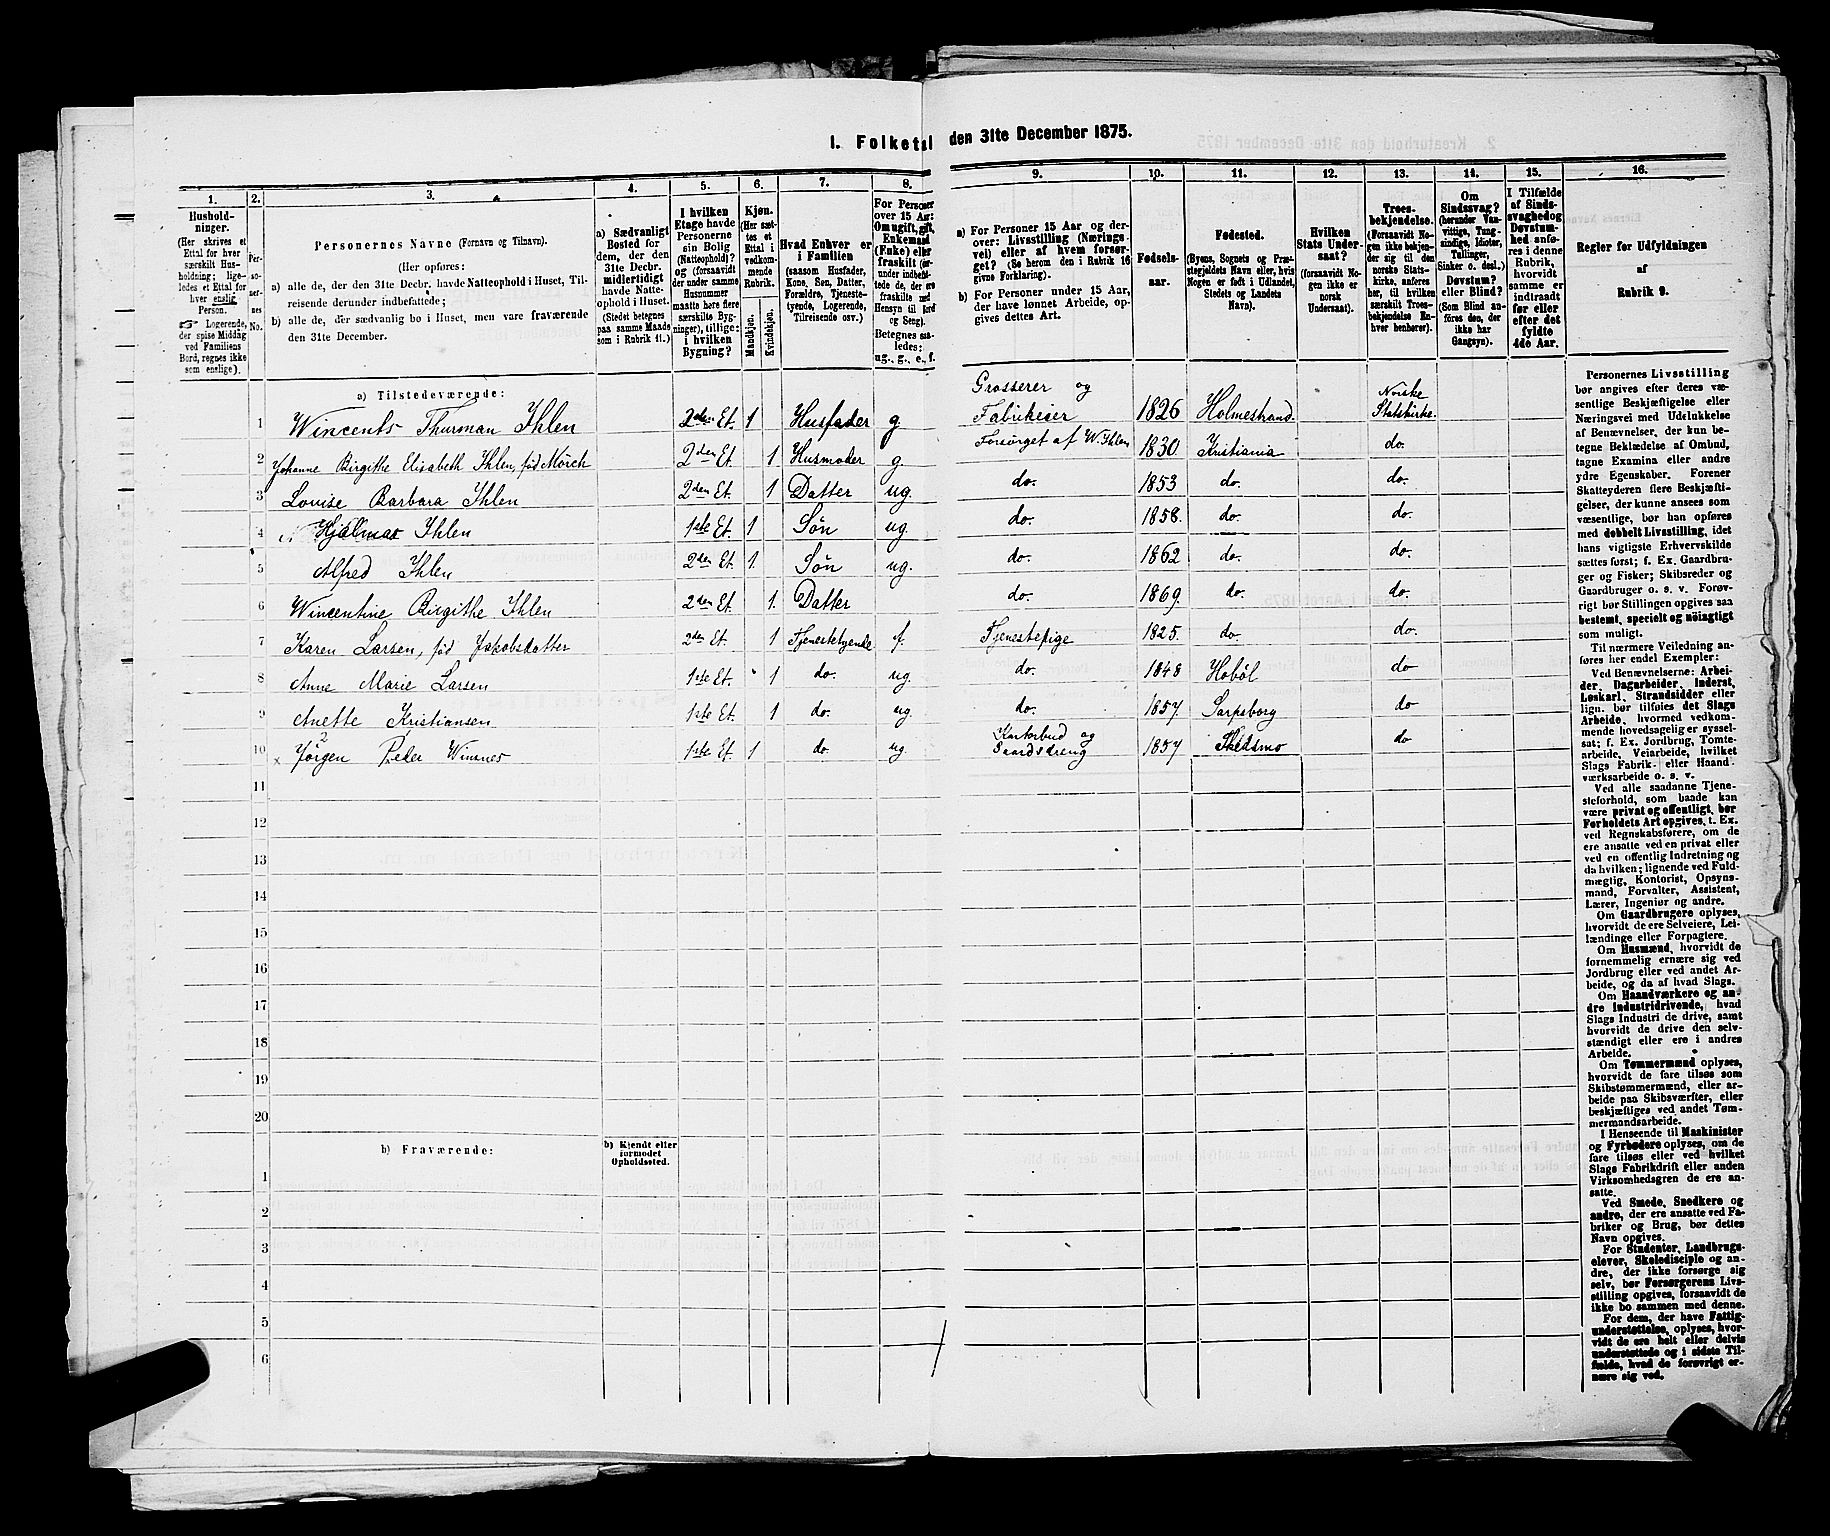 1. Folketal den 31te December 1875.
1.
2.
3.
4.
5.
6.
7.
8.
9.
10.
11.
12.
13.
14.
15.
16.
Hushold-
ninger.
(Her skrives et
Ettal for hver
særskilt Hus-
holdning; lige-
ledes et Ettal for
hver enslig
Person.
☞ Logerende,
der spise Middag
ved Familiens
Bord, regnes ikke
som enslige).
Per-
so-
ner-
nes
No.
Personernes Navne (Fornavn og Tilnavn).
(Her opføres:
a) alle de, der den 31te Decbr. havde Natteophold i Huset, Til-
reisende derunder indbefattede;
b) alle de, der sædvanlig bo i Huset, men vare fraværende
den 31te December.
a) Sædvanligt
Bosted for
dem, der den
31te Decbr.
midlertidigt
havde Natte-
ophold i Huset.
(Stedet betegnes
paa samme Maade
som i Rubrik 11.)
I hvilken
Etage havde
Personerne
sin Bolig
(Natteophold)?
og (forsaavidt
der under samme
Husnummer
maatte høre flere
særskilte Byg-
ninger), tillige:
i hvilken
Bygning?
Kjøn.
(Her sæt-
tes et
Ettal i
vedkom-
mende
Rubrik.
Mandkjøn.
Kvindekjøn.
Hvad Enhver er
i Familien
(saasom Husfader,
Kone, Søn, Datter,
Forældre, Tjeneste-
tyende, Logerende,
Tilreisende osv.)
For Personer
over 15 Aar:
Om ugift, gift,
Enkemand
(Enke) eller
fraskilt
Betegnes saa-
ledes:
ug., g., e., f.
a) For Personer 15 Aar og der-
over: Livsstilling (Nærings-
vei) eller af hvem forsør-
get? (Se herom den i Rubrik 16
givne Forklaring).
b) For Personer under 15 Aar,
der have lønnet Arbeide, op-
gives dettes Art.
Fødsels-
aar.
Fødested.
(Byens, Sognets og Præ-
stegjeldets Navn eller, hvis
Nogen er født i Udlandet,
Stedets og Landets
Navn).
Hvilken
Stats Under-
saat?
(forsaavidt No-
gen ikke er
norsk
Undersaat).
Troes-
bekjendelse.
(Forsaavidt No-
gen ikke bekjen-
der sig til den
norske Stats-
kirke, anføres
her, til hvilken
særskilt Troes-
bekjendelse En-
hver henhører).
Om
Sindssvag?
(herunder Van-
vittige, Tung-
sindige, Idioter,
Tullinger,
Sinker o. desl.)
Døvstum?
eller Blind?
(Som Blind an-
føres den, der
ikke har
Gangsyn).
I Tilfælde
af Sinds-
svaghed og
Døvstum-
hed anfø-
res i denne
Rubrik,
hvorvidt
samme er
indtraadt
før eller
efter det
fyldte
4de Aar.
Regler for Udfyldningen
af
Rubrik 9.
a) Tilstedeværende:
1 Wincents Thurman Ihlen 2den Et. 1 Husfader g. Grosserer og Fabrikeier 1826 Holmestrand. Norske Statskirke.
2 Johanne Birgithe Elisabeth Ihlen, fød Mörch 2den Et. 1 Husmoder g. Forsörget af W. Ihlen 1830. Kristiania do.
3 Louise Barbara Ihlen 2den Et. 1 Datter ug. do. 1853 do. do.
4 Hjalmar Ihlen 1ste Et. 1 Sön ug. do. 1858. do. do.
5 Alfred Ihlen 2den Et. 1. Sön ug. do. 1862. do. do.
6 Wincentine Birgithe Ihlen 2den Et. 1. Datter do. 1869. do. do.
7 Karen Larsen, fød Jakobsdatter 2den Et. 1 Tjenestetyende f. Tjenestepige 1825. do. do.
8 Anne Marie Larsen 1ste Et. 1 do. ug. do. 1848 Haböl do
9 Anette Kristiansen 1ste Et. 1 do. ug. do. 1857. Sarpsborg do
10 x Jörgen Peder Winsnes 1ste Et. 1 do. ug. Kontorbud og Gaardsdreng 1857 Skedsmo do
11
12
13
14
15
16
17
18
19
20
b) Fraværende:
b) Kjendt eller
formodet
Opholdssted.
1
2
3
4
5
6
Personernes Livsstilling
bør angives efter deres væ-
sentlige Beskjæftigelse eller
Næringsvei med Udelukkelse
af Benævnelser, der kun be-
tegne Beklædelse af Ombud,
tagne Examina eller andre
ydre Egenskaber. Forener
Skatteyderen flere Beskjæfti-
gelser, der kunne ansees som
væsentlige, bør han opføres
med dobbelt Livsstilling, idet
hans vigtigste Erhvervskilde
sættes først; f. Ex. Gaardbru-
ger og Fisker; Skibsreder og
Gaardbruger o. s. v. Forøv-
rigt bør Stillingen opgives saa
bestemt, specielt og nøiagtigt
som muligt.
Til nærmere Veiledning an-
føres her endel Exempler:
Ved Benævnelserne: Arbei-
der, Dagarbeider, Inderst,
Løskarl, Strandsidder eller
lign. bør tilføies det Slags
Arbeide, hvormed vedkom-
mende hovedsagelig er syssel-
sat; f. Ex. Jordbrug, Tomte-
arbeide, Veiarbeide, hvilket
Slags Fabrik- eller Haand-
værksarbeide o. s. v.
Ved alle saadanne Tjene-
steforhold, som baade kan
være privat og offentligt, bør
Forholdets Art opgives, t. Ex.
ved Regnskabsførere, om de
ere ansatte ved en privat eller
ved en offentlig Indretning og
da hvilken; lignende ved Fuld-
mægtig, Kontorist, Opsyns-
mand, Forvalter, Assistent,
Lærer, Ingeniør og andre.
Om Gaardbrugere oplyses,
hvorvidt de ere Selveiere, Lei-
lændinge eller Forpagtere.
Om Husmænd, hvorvidt de
fornemmelig ernære sig ved
Jordbrug eller ved andet Ar-
beide, og da af hvad Slags.
Om Haandværkere og an-
dre Industridrivende, hvad
Slags Industri de drive, samt
hvorvidt de drive den selv-
stændigt eller ere i andres
Arbeide.
Om Tømmermænd oplyses,
hvorvidt de fare tilsøs som
Skibstømmermænd, eller ar-
beide paa Skibsværfter, eller
beskjæftiges ved andet Tøm-
mermandsarbeide.
I Henseende til Maskinister
og Fyrbødere oplyses, om de
fare tilsøs eller ved hvilket
Slags Fabrikdrift eller anden
Virksomhedsgren de ere an-
satte.
Ved Smede, Snedkere og
andre, der ere ansatte ved Fa-
briker og Brug, bør dettes
Navn opgives.
For Studenter, Landbrugs-
elever, Skoledisciple og an-
dre, der ikke forsørge sig
selv, bør Forsørgerens Livs-
stilling opgives, forsaavidt de
ikke bo sammen med denne.
For dem, der have Fattig-
understøttelse, oplyses, hvor-
vidt de ere helt eller delvis
understøttede og i sidste Til-
fælde, hvad de forøvrigt er-
nære sig ved.